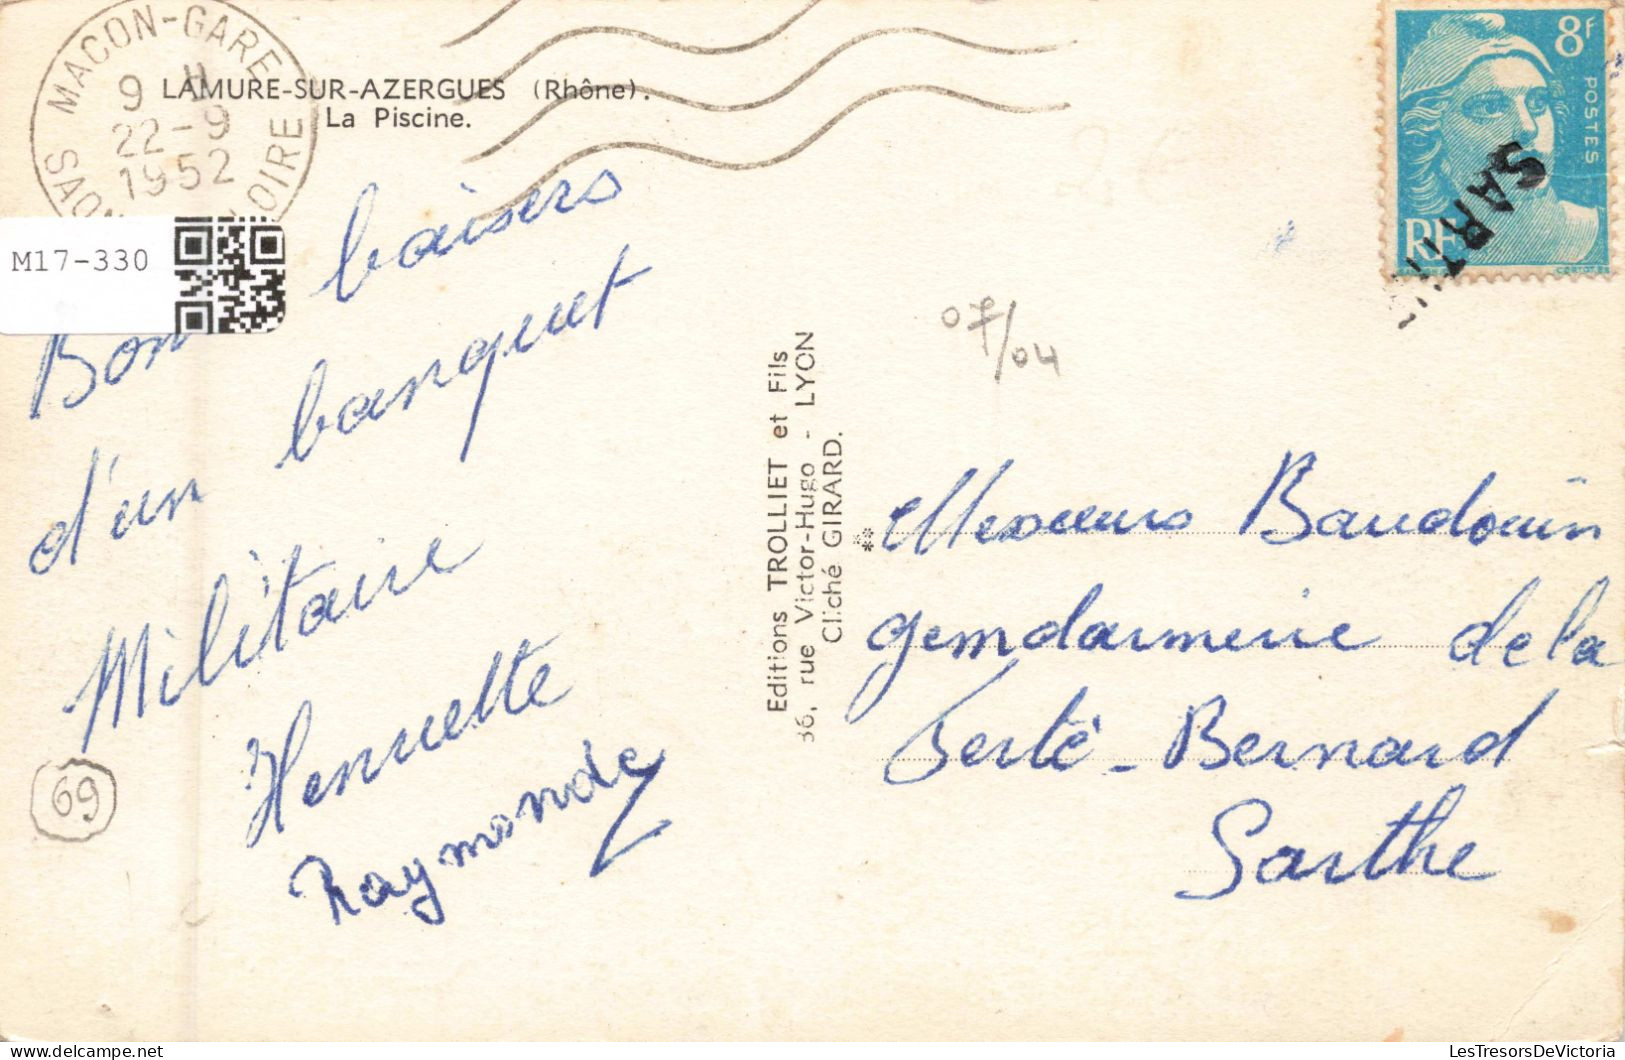 MACON-GARE
9 H
22-9
1952
SAONE LOIRE
LAMURE-SUR-AZERGUES (Rhône).
La Piscine.
M17-330
Bons baisers
d'un banquet
Militaire
Henriette
Raymonde
69
07/04
Editions TROLLIET et Fils
36, rue Victor-Hugo - LYON
Cliché GIRARD.
8F
POSTES
RF
Messieurs Baudouin
gendarmerie de la
Ferté-Bernard
Sarthe
LesTresorsDeVictoria